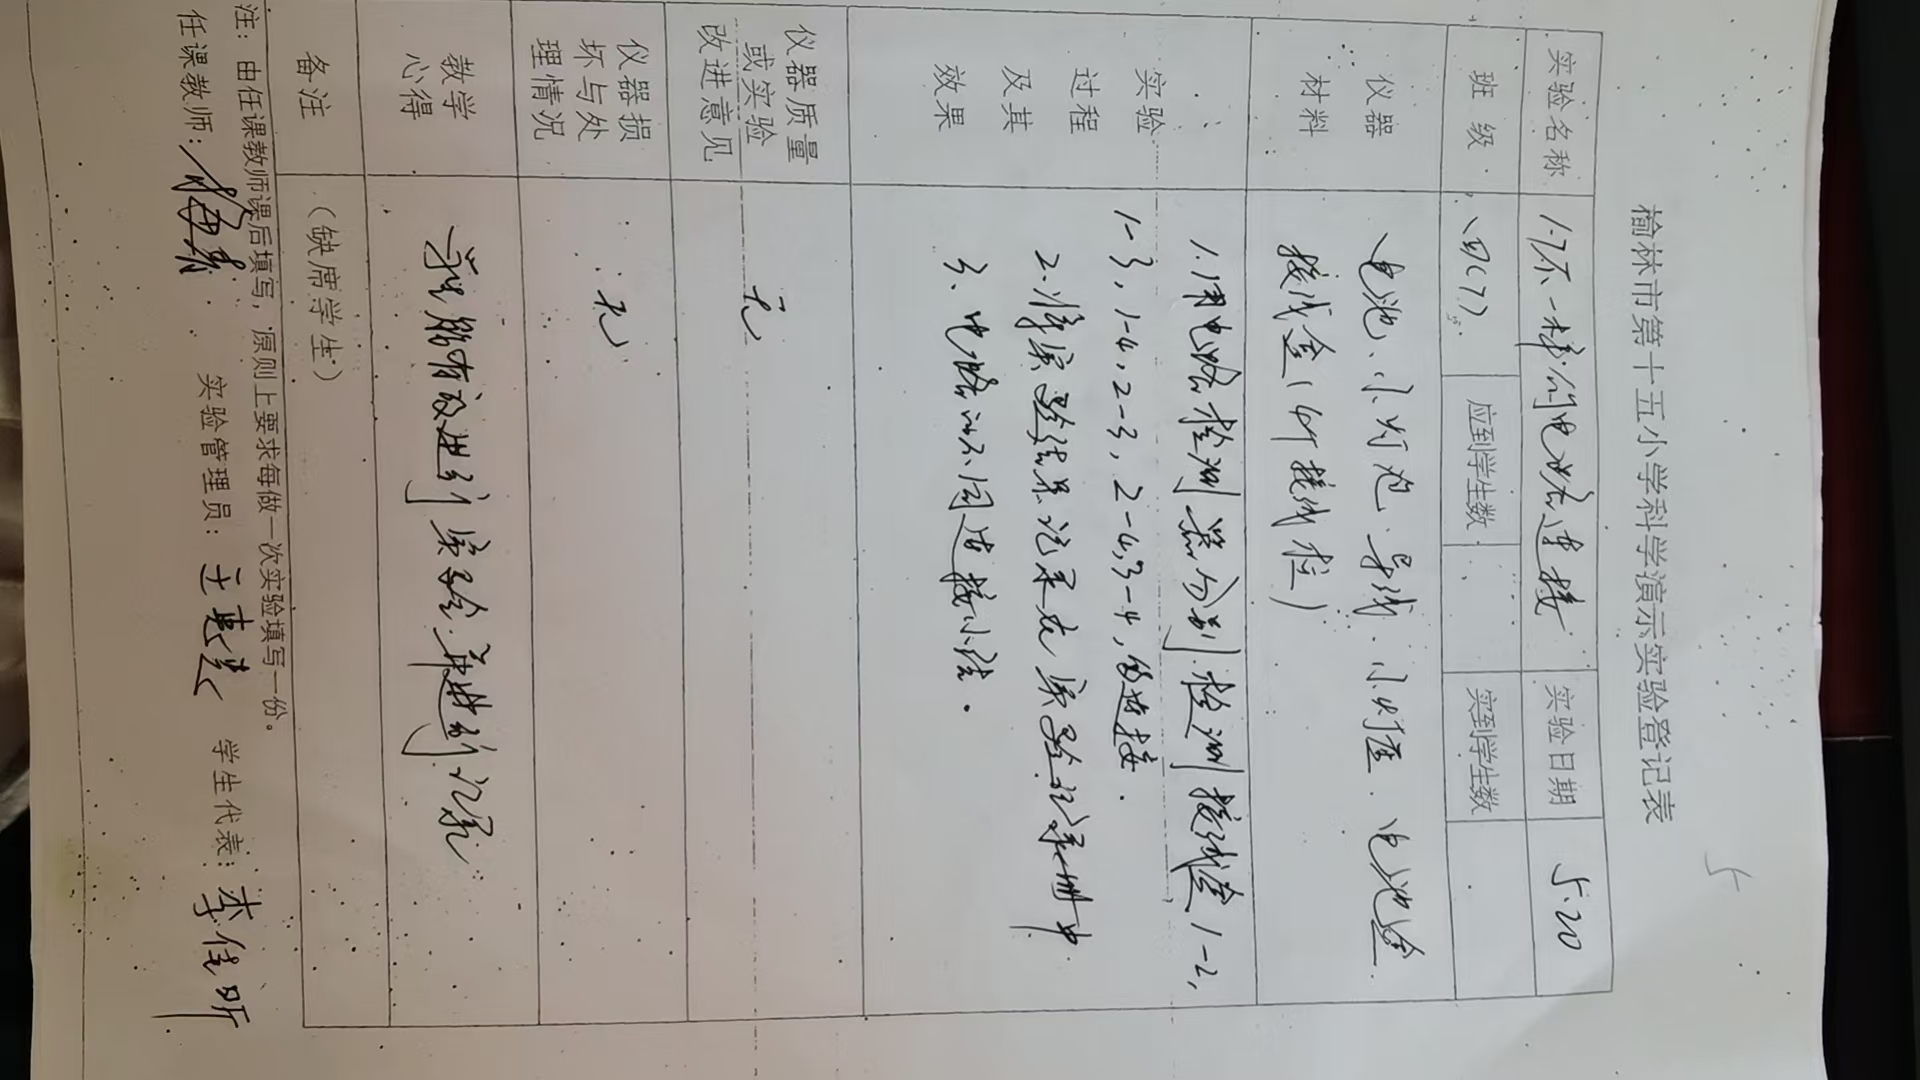 榆林市第十五小学科学演示实验登记表
5
实验名称 1-7不一样的电路连接 实验日期 5.20
班级 四(7) 应到学生数 实到学生数
仪器材料
电池、小灯泡、导线、小灯座、电池盒
接线盒(4个接线柱)
实验过程及其效果
1.用电路检测器分别检测接线盒1-2,
1-3,1-4,2-3,2-4,3-4,的连接.
2.将实验结果记录在实验记录册中
3、电路的不同连接小结.
仪器质量或实验改进意见 无
仪器损坏与处理情况 无
教学心得 学生能有效进行实验.并进行记录
备注 (缺席学生)
注:由任课教师课后填写,原则上要求每做一次实验填写一份。
任课教师: 实验管理员:王建 学生代表:李佳昕